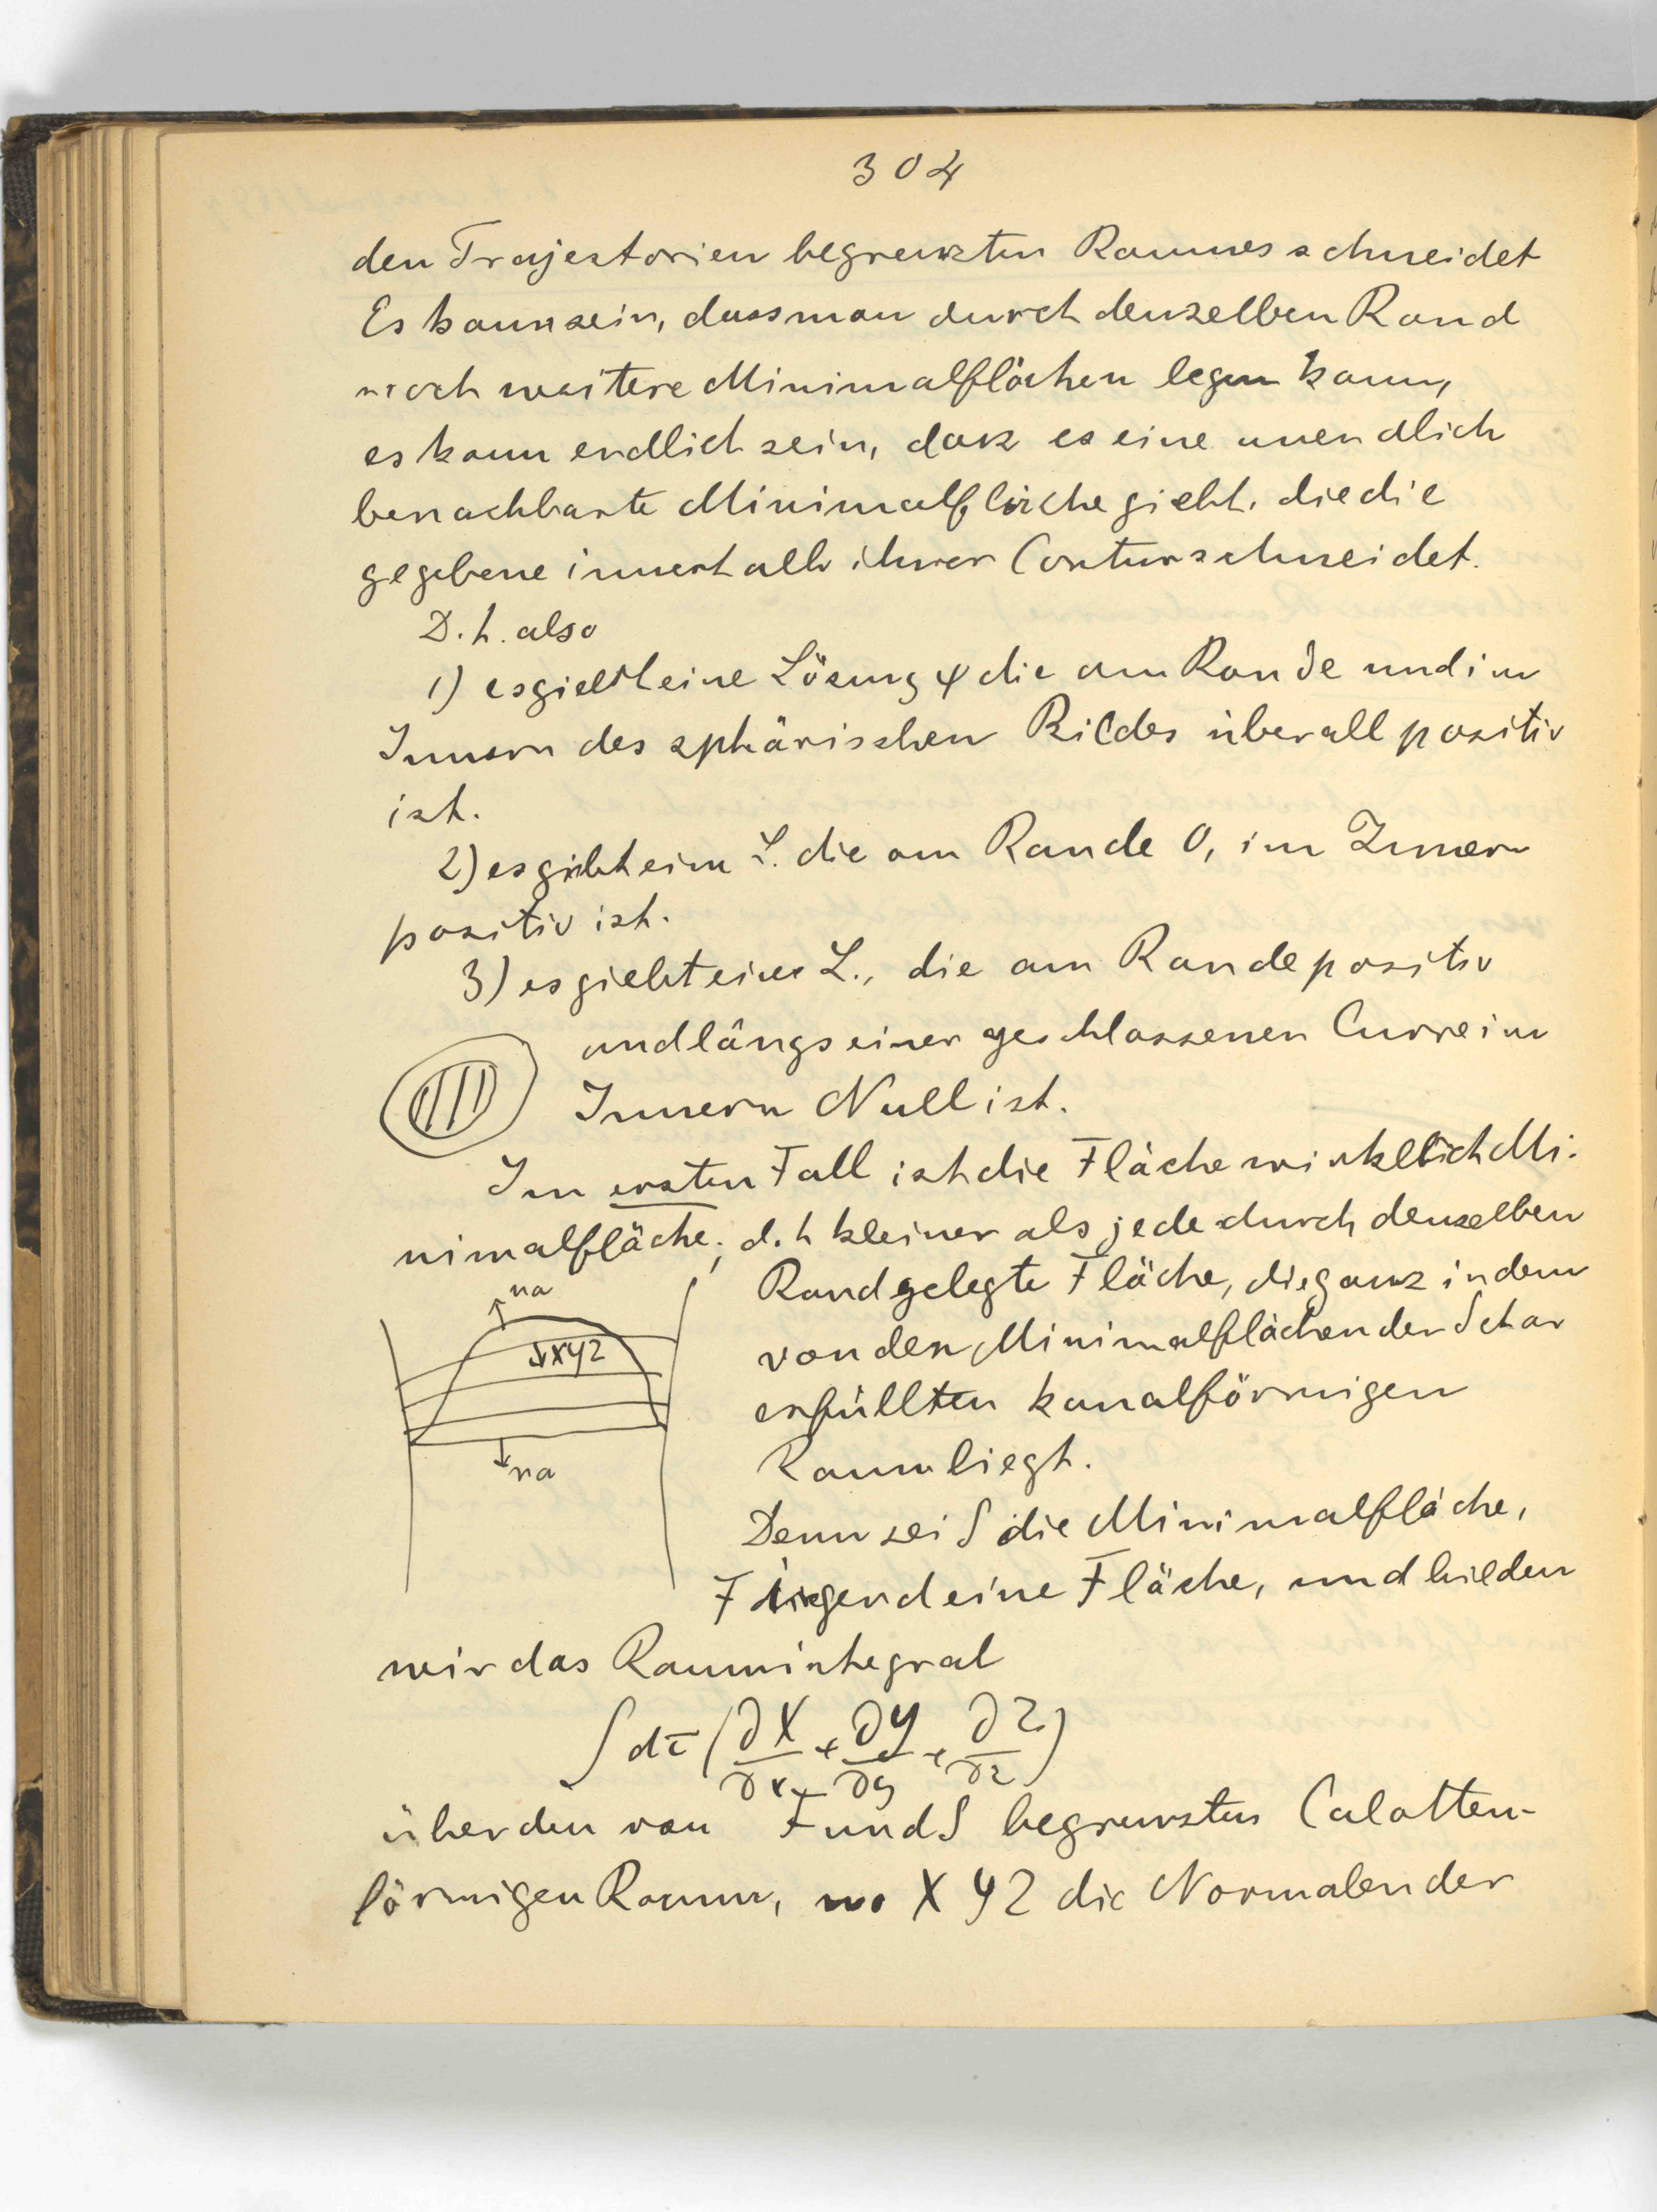 304
den Trajektorien begrenzten Raumes schneidet
Es kann sein, dass man durch denselben Rand
noch weitere Minimalflächen legen kann,
es kann endlich sein, dass es eine unendlich
benachbarte Minimalfläche giebt, die die
gegebene innerhalb ihrer Contur schneidet.
D. h. also
1) es giebt eine Lösung φ die am Rande und im
Innern des sphärischen Bildes überall positiv
ist.
2) es giebt eine L. die am Rande 0, im Innern
positiv ist.
3) es giebt eine L., die am Rande positiv
und längs einer geschlossenen Curve im
Innern Null ist.
Im ersten Fall ist die Fläche wirklich Mi-
nimalfläche; d. h kleiner als jede durch denselben
Rand gelegte Fläche, die ganz in dem
von den Minimalflächen der Schar
erfüllten kanalförmigen
Raum liegt.
na
↓XYZ
na
Denn sei S die Minimalfläche,
F irgend eine Fläche, und bilden
wir das Raumintegral
∫dτ(∂X/∂x + ∂Y/∂y + ∂Z/∂z)
über den von F und S begrenzten Calotten-
förmigen Raum, wo X Y Z die Normalen der